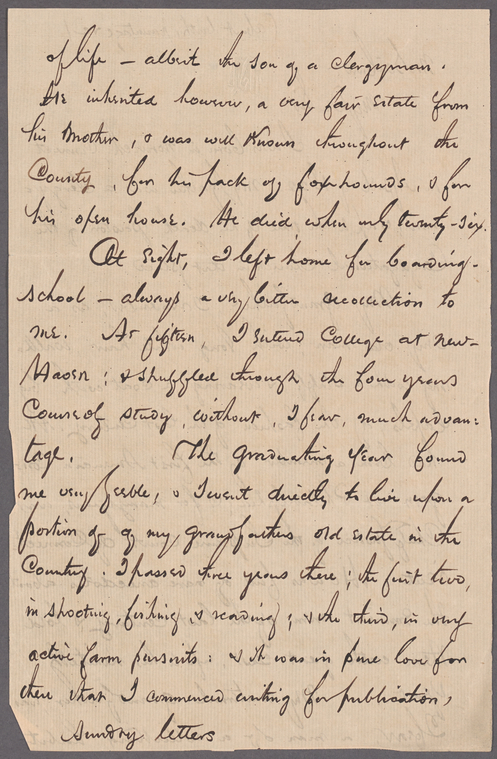 of life — albeit the son of a clergyman.
He inherited however, a very fair estate from
his Mother, & was well known throughout the
County, for his pack of foxhounds, & for
his open house. He died when only twenty-six.
At Eight, I left home for boarding-
school — always a very bitter recollection to
me. At fifteen, I entered College at New-
Haven; & shuffled through the four years
Course of study, without, I fear, much advan-
tage. The graduating year found
me very feeble, & I went directly to live upon a
portion of my grandfathers old estate in the
Country. I passed three years there; the first two,
in shooting, fishing, & reading; & the third, in very
active farm pursuits: & it was in pure love for
these that I commenced writing for publication,
Sundry letters